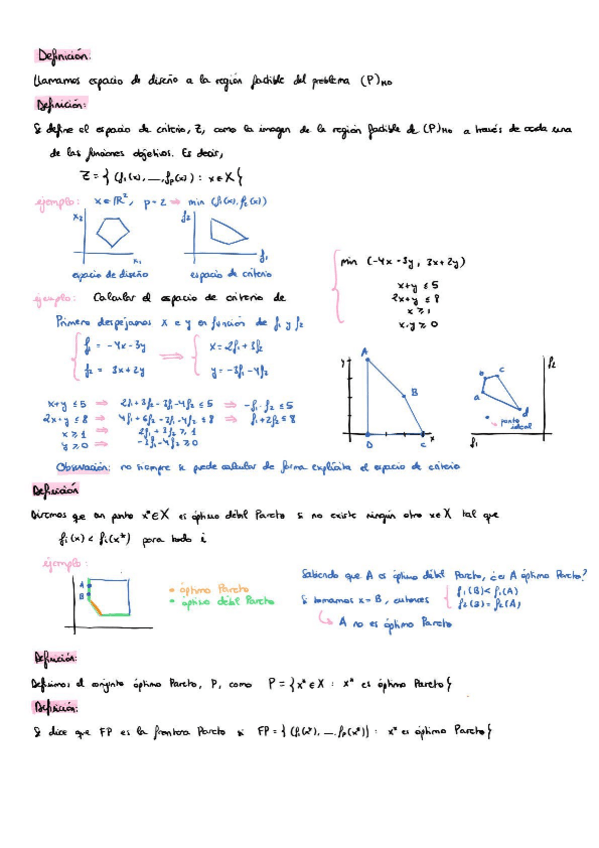 Definición:
Llamamos espacio de diseño a la región factible del problema (P)MO
Definición:
Se define el espacio de criterio, Z, como la imagen de la región factible de (P)MO a través de cada una
de las funciones objetivos. Es decir,
Z = { (f₁(x), ..., fp(x)) : x ∈ X }
ejemplo: x ∈ ℝ², p = 2 ⇒ min (f₁(x), f₂(x))
x₂
x₁
f₂
f₁
espacio de diseño
espacio de criterio
min (-4x -3y, 3x+2y)
x+y ≤ 5
2x+y ≤ 8
x ≥ 1
x,y ≥ 0
ejemplo: Calcular el espacio de criterio de
Primero despejamos x e y en función de f₁ y f₂
f₁ = -4x-3y ⇒ x = 2f₁ + 3f₂
f₂ = 3x+2y
y = -3f₁ - 4f₂
x+y ≤ 5 ⇒ 2f₁+3f₂-3f₁-4f₂ ≤ 5 ⇒ -f₁-f₂ ≤ 5
2x+y ≤ 8 ⇒ 4f₁+6f₂-3f₁-4f₂ ≤ 8 ⇒ f₁+2f₂ ≤ 8
x ≥ 1 ⇒ 2f₁+3f₂ ≥ 1
y ≥ 0 ⇒ -3f₁-4f₂ ≥ 0
y
A
B
D
C
x
f₂
b
c
a
d
punto
ideal
f₁
Observación: no siempre se puede calcular de forma explícita el espacio de criterio
Definición
Diremos que un punto x* ∈ X es óptimo débil Pareto si no existe ningún otro x ∈ X tal que
fi(x) < fi(x*) para todo i
ejemplo:
A
B
óptimo Pareto
óptimo débil Pareto
Sabiendo que A es óptimo débil Pareto, ¿es A óptimo Pareto?
Si tomamos x = B, entonces
f₁(B) < f₁(A)
f₂(B) = f₂(A)
A no es óptimo Pareto
Definición:
Definimos el conjunto óptimo Pareto, P, como P = { x* ∈ X : x* es óptimo Pareto }
Definición:
Se dice que FP es la frontera Pareto si FP = { (f₁(x*), ..., fp(x*)) : x* es óptimo Pareto }